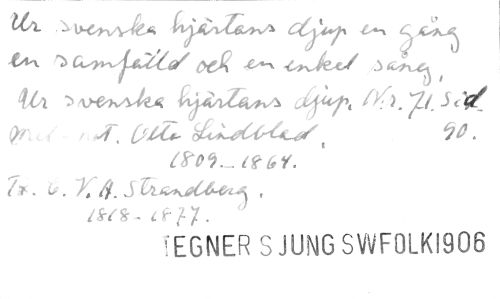 Ur svenska hjärtans djup en gång
en samfälld och en enkel sång,
Ur svenska hjärtans djup. Nr. 71. Sid.
Mel. not. Otto Lindblad, 90.
1809-1864.
Tx. C. V. A. Strandberg.
1818-1877.
TEGNER SJUNG SWFOLK1906